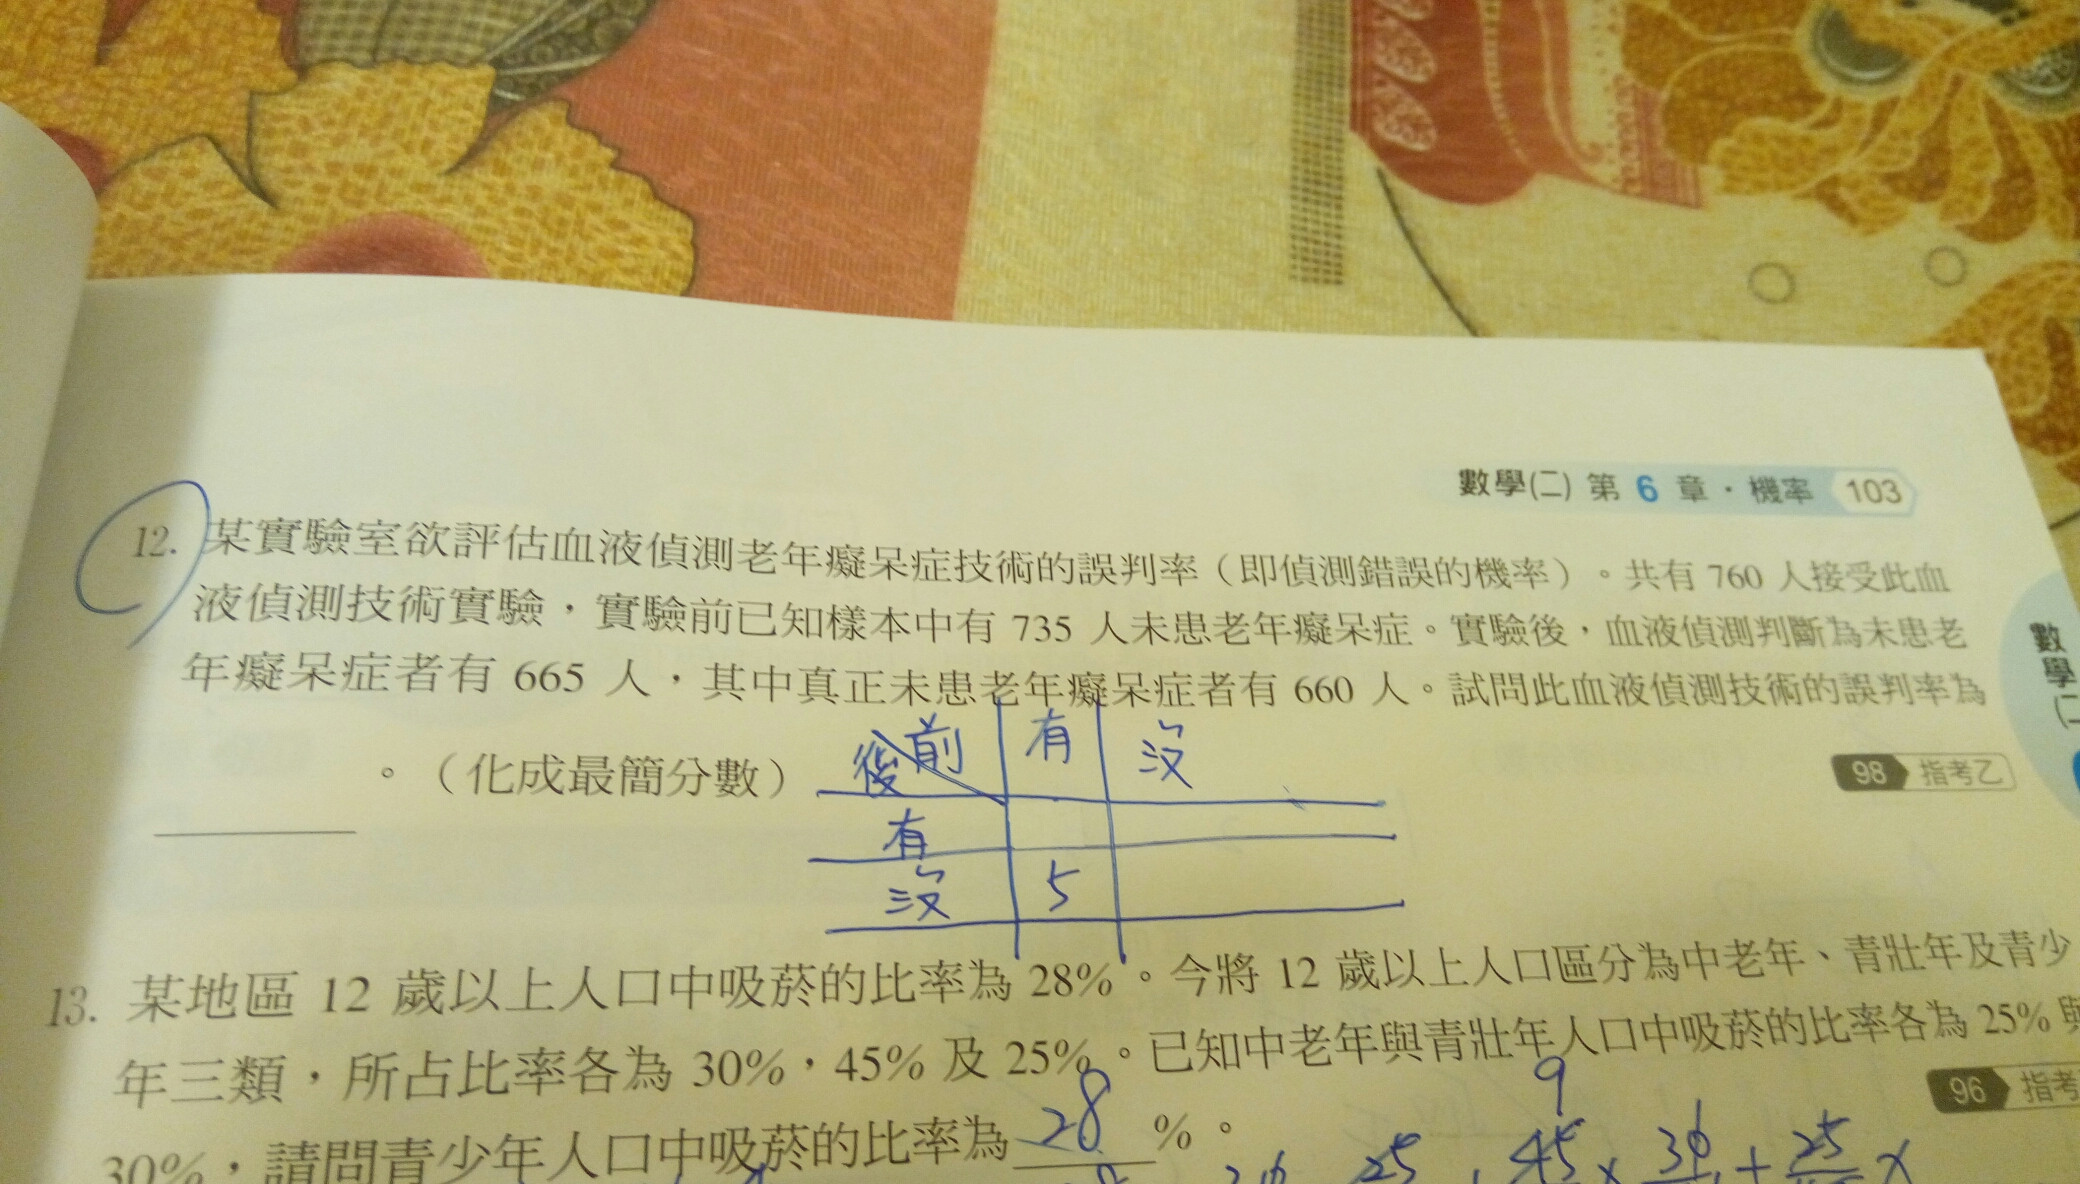 數學(二) 第 6 章·機率 103
12. 某實驗室欲評估血液偵測老年癡呆症技術的誤判率（即偵測錯誤的機率）。共有 760 人接受此血
液偵測技術實驗，實驗前已知樣本中有 735 人未患老年癡呆症。實驗後，血液偵測判斷為未患老
年癡呆症者有 665 人，其中真正未患老年癡呆症者有 660 人。試問此血液偵測技術的誤判率為
。（化成最簡分數）
98 指考乙
後 前 有 沒
有
沒 5
數學(二
13. 某地區 12 歲以上人口中吸菸的比率為 28%。今將 12 歲以上人口區分為中老年、青壯年及青少
年三類，所占比率各為 30%，45% 及 25%。已知中老年與青壯年人口中吸菸的比率各為 25% 與
96 指考
30%，請問青少年人口中吸菸的比率為 28 %。
9
25 45 × 30 + 25 ×